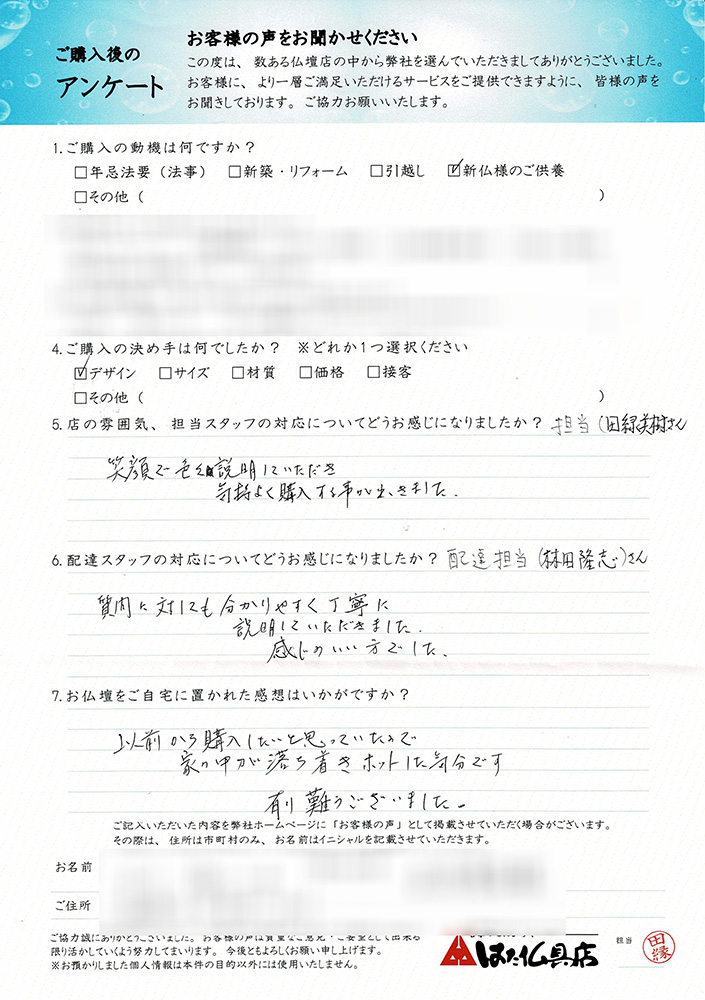 ご購入後の
アンケート
お客様の声をお聞かせください
この度は、数ある仏壇店の中から弊社を選んでいただきましてありがとうございました。
お客様に、より一層ご満足いただけるサービスをご提供できますように、皆様の声を
お聞きしております。ご協力お願いいたします。
1.ご購入の動機は何ですか？
□年忌法要（法事） □新築・リフォーム □引越し ☑新仏様のご供養
□その他（ ）
4.ご購入の決め手は何でしたか？ ※どれか1つ選択ください
☑デザイン □サイズ □材質 □価格 □接客
□その他（ ）
5.店の雰囲気、担当スタッフの対応についてどうお感じになりましたか？ 担当（田縁美樹さん
笑顔で色々説明していただき
気持よく購入する事が出来きました.
6.配達スタッフの対応についてどうお感じになりましたか？ 配達担当（林田隆志）さん
質問に対しても分かりやすく丁寧に
説明していただきました.
感じのいい方でした.
7.お仏壇をご自宅に置かれた感想はいかがですか？
以前から購入したいと思っていたので
家の中が落ち着きホットした気分です
有り難うございました。
ご記入いただいた内容を弊社ホームページに「お客様の声」として掲載させていただく場合がございます。
その際は、住所は市町村のみ、お名前はイニシャルを記載させていただきます。
お名前
ご住所
ご協力誠にありがとうございました。お客様の声は貴重なご意見・ご要望として出来る
限り活かしていくよう努力してまいります。今後ともよろしくお願い申し上げます。
※お預かりしました個人情報は本件の目的以外には使用いたしません。
はた仏具店
担当
田縁